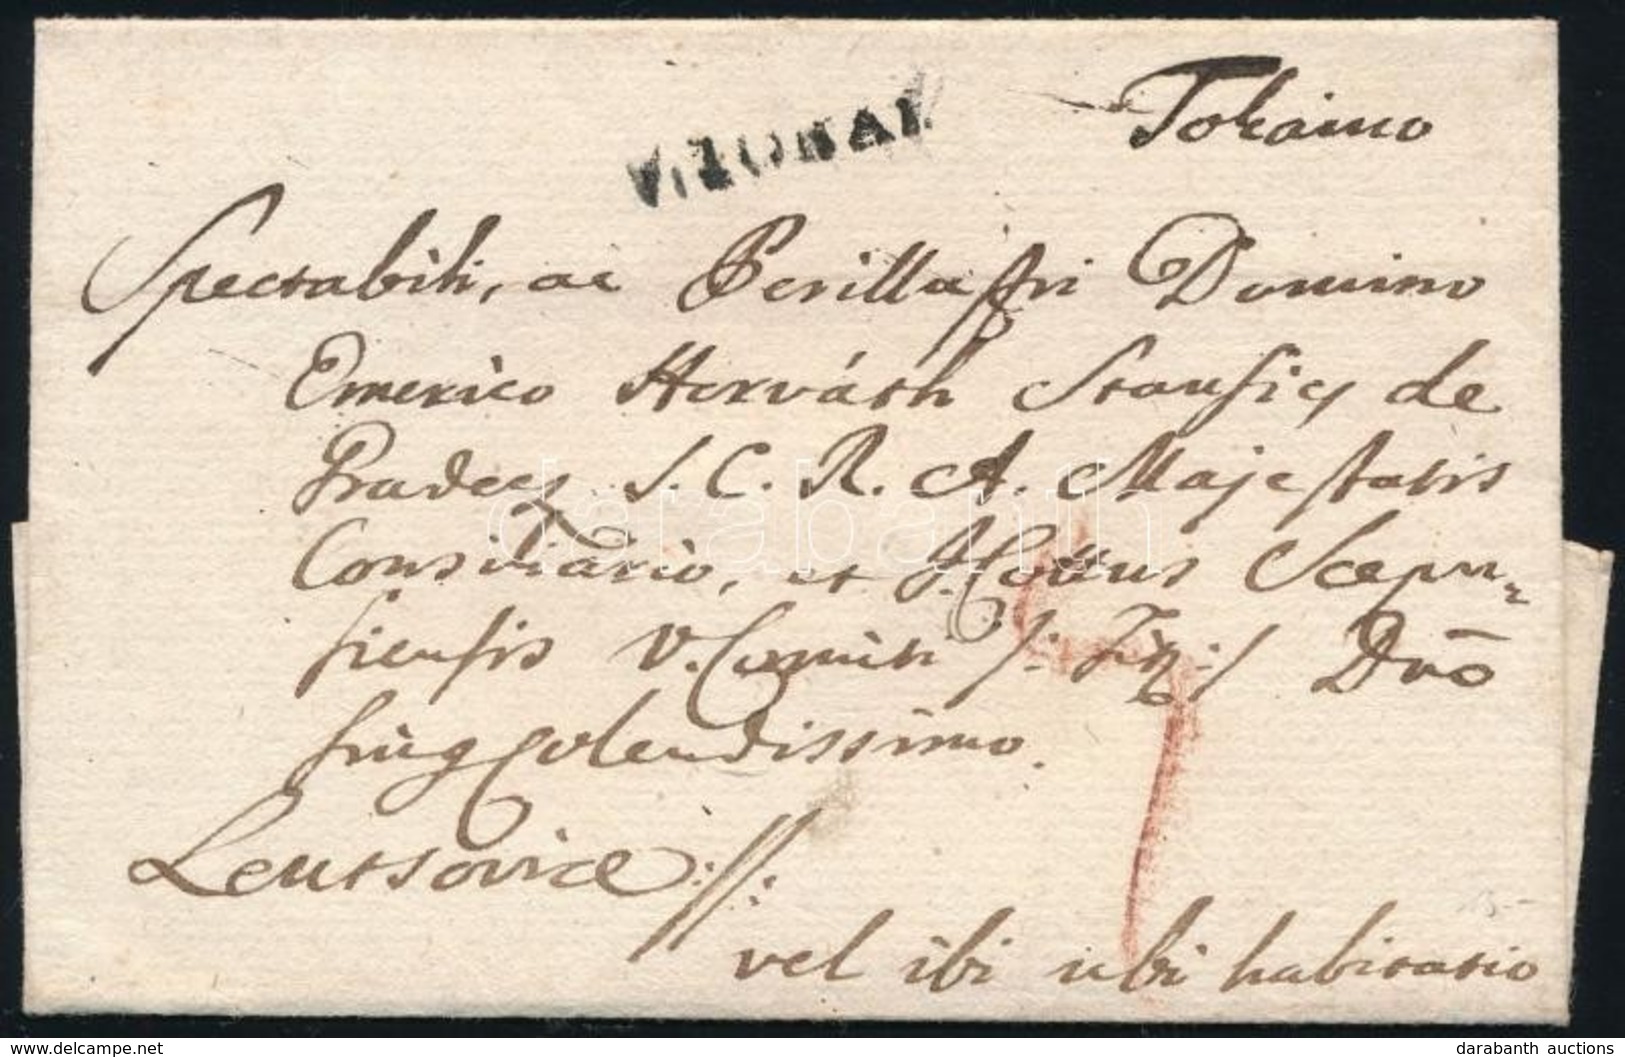 V:TOKAI
Tokaino
Spectabili, ac Perillustri Domino
Emerico Horváth Stansicz de
Gradecz S. C. R. A. Majestatis
Consiliario, et I. Cottus Scepu-
siensis V. Comiti /: Titt :/ Dno
singcolendissimo.
Leutsoviae
vel ibi ubi habitatio
databanth
delcampe.net
darabanth auctions